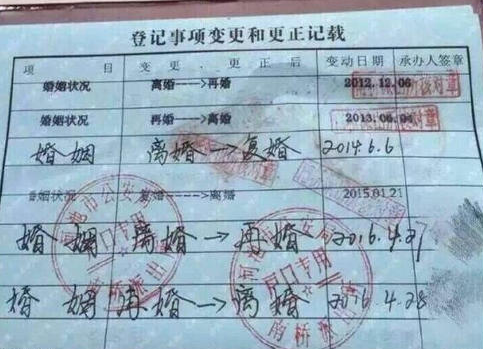 登记事项变更和更正记载
项 目 变更、更正后 变动日期 承办人签章
婚姻状况 离婚--->再婚 2012.12.06
婚姻状况 再婚--->离婚 2013.06.04
婚姻 离婚→复婚 2014.6.6
婚姻状况 复婚--->离婚 2015.01.21
婚姻 离婚→再婚 2016.4.27
婚姻 再婚→离婚 2016.4.28
河池市公安局
户口专用
南桥派出
河池市公安局
户口专用
南桥派出